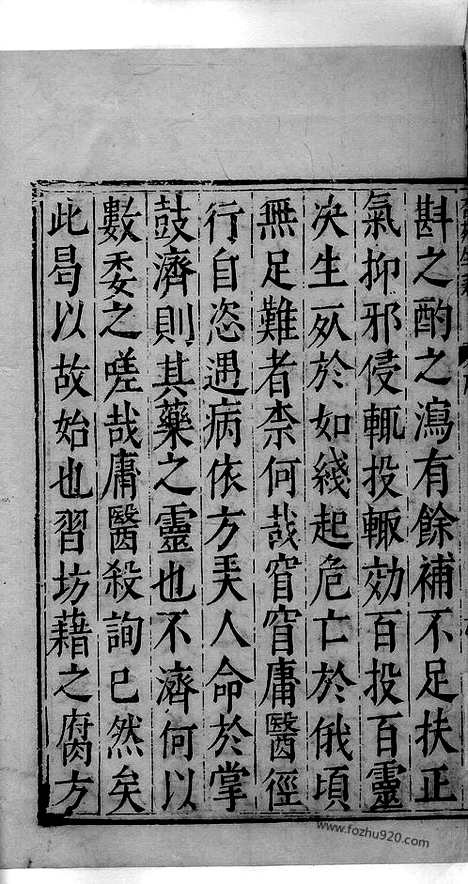 斟之酌之瀉有餘補不足扶正
氣抑邪侵輒投輒効百投百靈
决生死於如綫起危亡於俄頃
無足難者柰何哉窅窅庸醫徑
行自恣遇病依方美人命於掌
鼓濟則其藥之靈也不濟何以
數委之嗟哉庸醫殺詢已然矣
此曷以故始也習坊藉之腐方
www.fozhu920.com